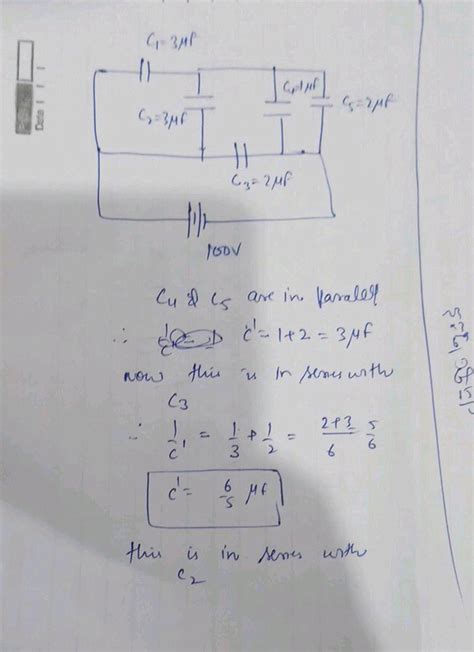 Date
C₁=3μf
C₂=3μf
C₄=1μf
C₅=2μf
C₃=2μf
100V
C₄ & C₅ are in Parallel
∴ C'=1+2 = 3μf
Now this is in series with
C₃
∴ 1/C' = 1/3 + 1/2 = 2+3/6 5/6
C' = 6/5 μf
this is in series with
C₂